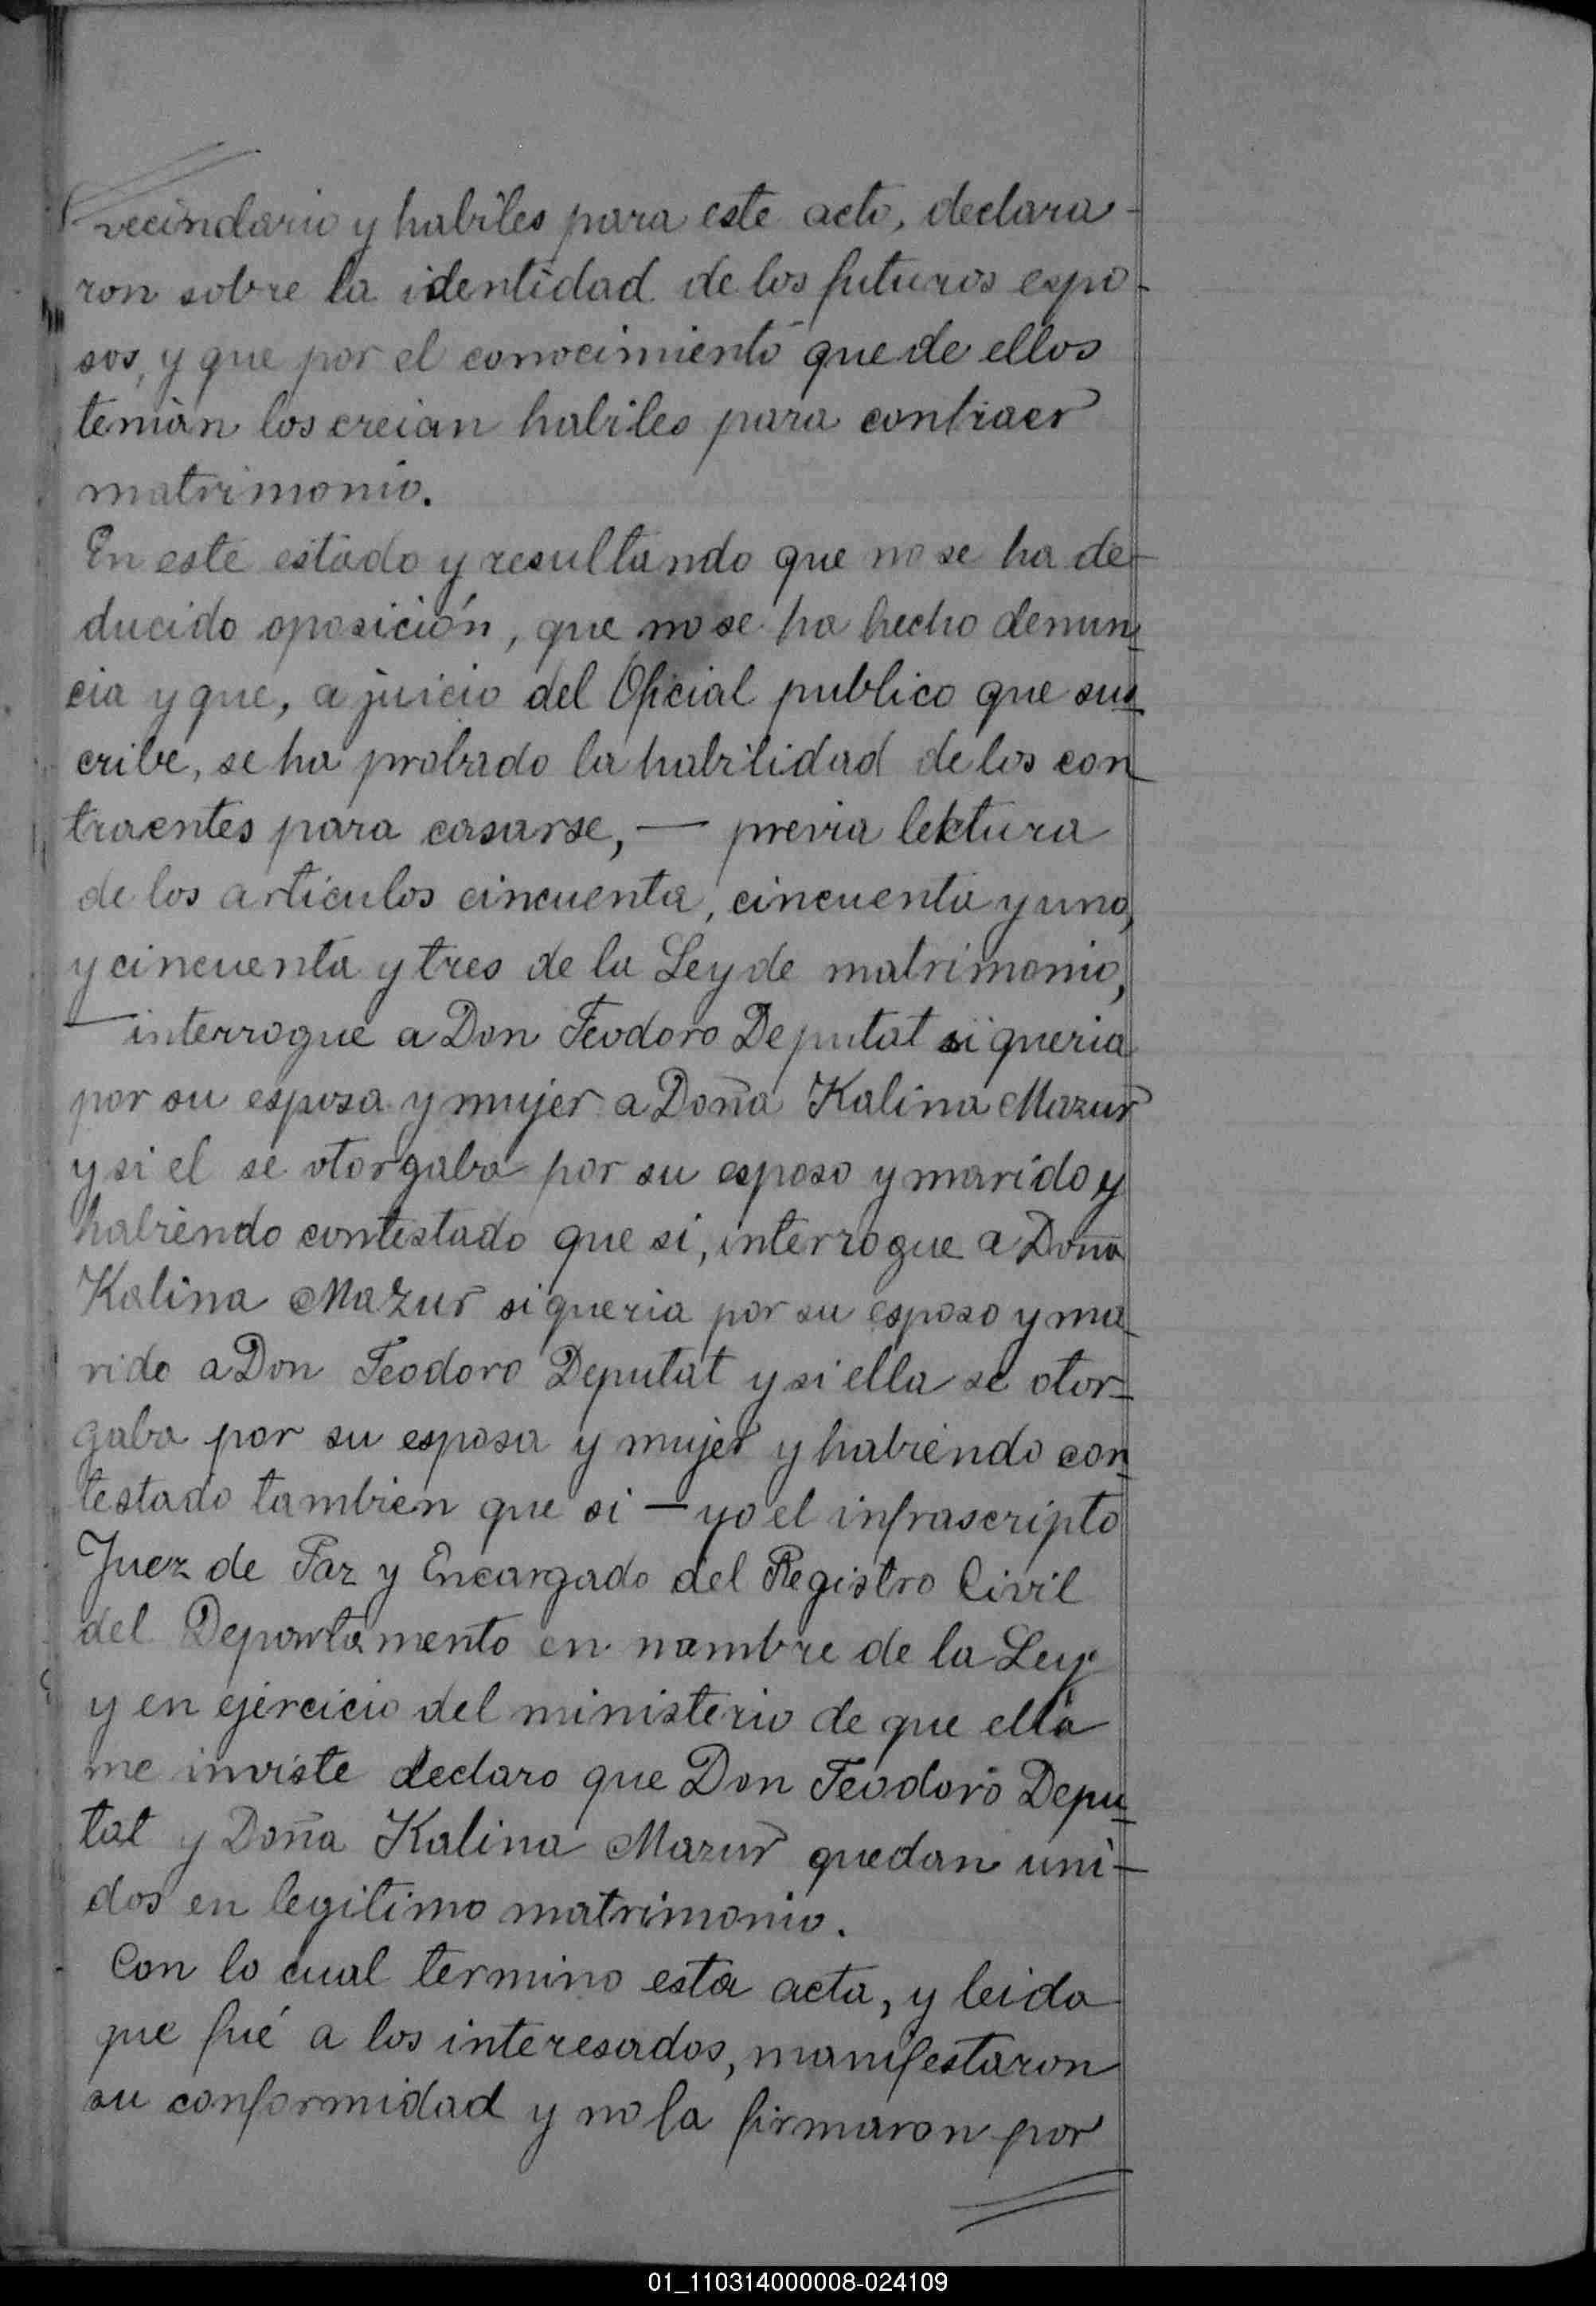 vecindario y habiles para este acto, declara-
ron sobre la identidad de los futuros espo-
sos, y que por el conocimiento que de ellos
tenian los creian habiles para contraer
matrimonio.
En este estado y resultando que no se ha de-
ducido oposición, que no se ha hecho denun-
cia y que, a juicio del Oficial publico que sus-
cribe, se ha probado la habilidad de los con-
traentes para casarse, — previa lektura
de los articulos cincuenta, cincuenta y uno,
y cincuenta y tres de la Ley de matrimonio,
— interrogue a Don Teodoro Deputat si queria
por su esposa y mujer a Doña Kalina Mazur
y si el se otorgaba por su esposo y marido y
habiendo contestado que si, interrogue a Doña
Kalina Mazur si queria por su esposo y ma-
rido a Don Teodoro Deputat y si ella se otor-
gaba por su esposa y mujer y habiendo con-
testado tambien que si — yo el infrascripto
Juez de Paz y Encargado del Registro Civil
del Departamento en nombre de la Ley
y en ejercicio del ministerio de que ella
me inviste declaro que Don Teodoro Depu-
tat y Doña Kalina Mazur quedan uni-
dos en legitimo matrimonio.
Con lo cual termino esta acta, y leida
que fué a los interesados, manifestaron
su conformidad y no la firmaron por
01_110314000008-024109